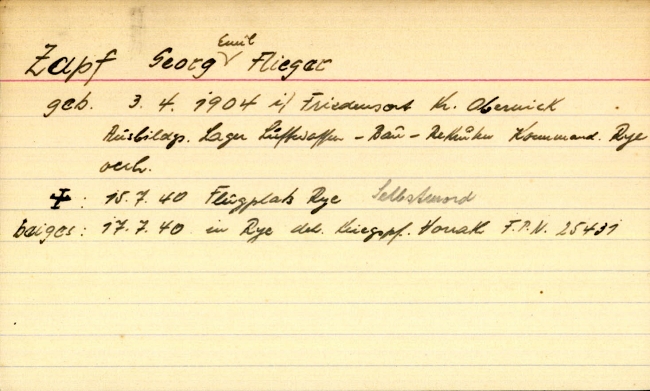 Zapf Georg Emil Flieger
geb. 3. 4. 1904 i/ Friedensort Kr. Oberwick
Ausbildgs. Lager Luftwaffen - Bau - Rekruten Kommand. Rye
verh.
✠ : 15.7.40 Flugplatz Rye Selbstmord
beiges : 17.7.40 in Rye dch. Kriegspf. Horak F.P.N. 25431